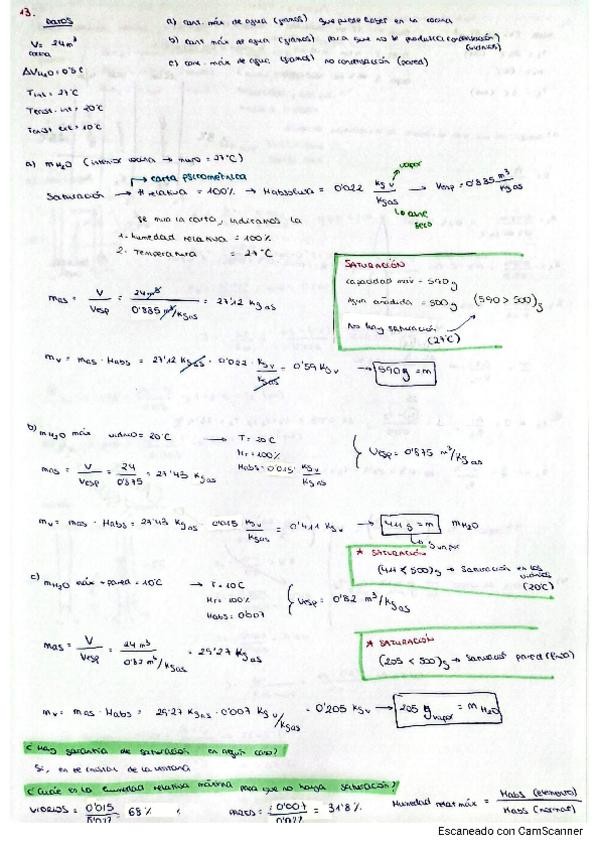 13.
DATOS
V = 24 m³
cocina
ΔV H₂O = 0'5 L
T int = 27°C
T const. int = 20°C
T const ext = 10°C
a) cant. máx de agua (gramos) que puede haber en la cocina
b) cant máx de agua (gramos) para que no se produzca condensación
(vidrios)
c) can. máx de agua (gramos) no condensación (pared)
a) mH₂O (interior cocina → muro = 27°C)
→ carta psicrométrica
vapor
Saturación → H relativa = 100% → H absoluta = 0'022 kg v / kg as → Vesp = 0'885 m³/kg as
aire
seco
Se mira la carta, indicamos la
1- humedad relativa = 100%
2- Temperatura = 27°C
SATURACIÓN
Capacidad máx = 590g
Agua añadida = 500g (590 > 500)g
No hay saturación
(27°C)
mas = V / Vesp = 24 m³ / 0'885 m³/kg as = 27'12 kg as
mv = mas · Habs = 27'12 kg as · 0'022 kg v / kg as = 0'59 kg v → 590g = m
b) mH₂O máx vidrio = 20°C → T = 20C
Hr = 100%
Habs = 0'015 kg v / kg as
Vesp = 0'875 m³/kg as
mas = V / Vesp = 24 / 0'875 = 27'43 kg as
mv = mas · Habs = 27'43 kg as · 0'015 kg v / kg as = 0'411 kg v → 411 g = m mH₂O
g vapor
* SATURACIÓN
(411 < 500)g → Saturación en los
vidrios
(20°C)
c) mH₂O máx → pared = 10°C → T = 10C
Hr = 100%
Habs = 0'007
Vesp = 0'82 m³/kg as
mas = V / Vesp = 24 m³ / 0'82 m³/kg as = 29'27 kg as
* SATURACIÓN
(205 < 500)g →
mv = mas · Habs = 29'27 kg as · 0'007 kg v / kg as = 0'205 kg v → 205 g vapor = mH₂O
¿Hay garantía de saturación en algún caso?
Sí, en el cristal de la ventana
¿Cuál es la humedad relativa máxima para que no haya saturación?
VIDRIOS = 0'015 / 0'022 = 68% = 0'007 / 0'022 = 31'8% Humedad relat máx = Habs (elemento) / Habs (normal)
Escaneado con CamScanner